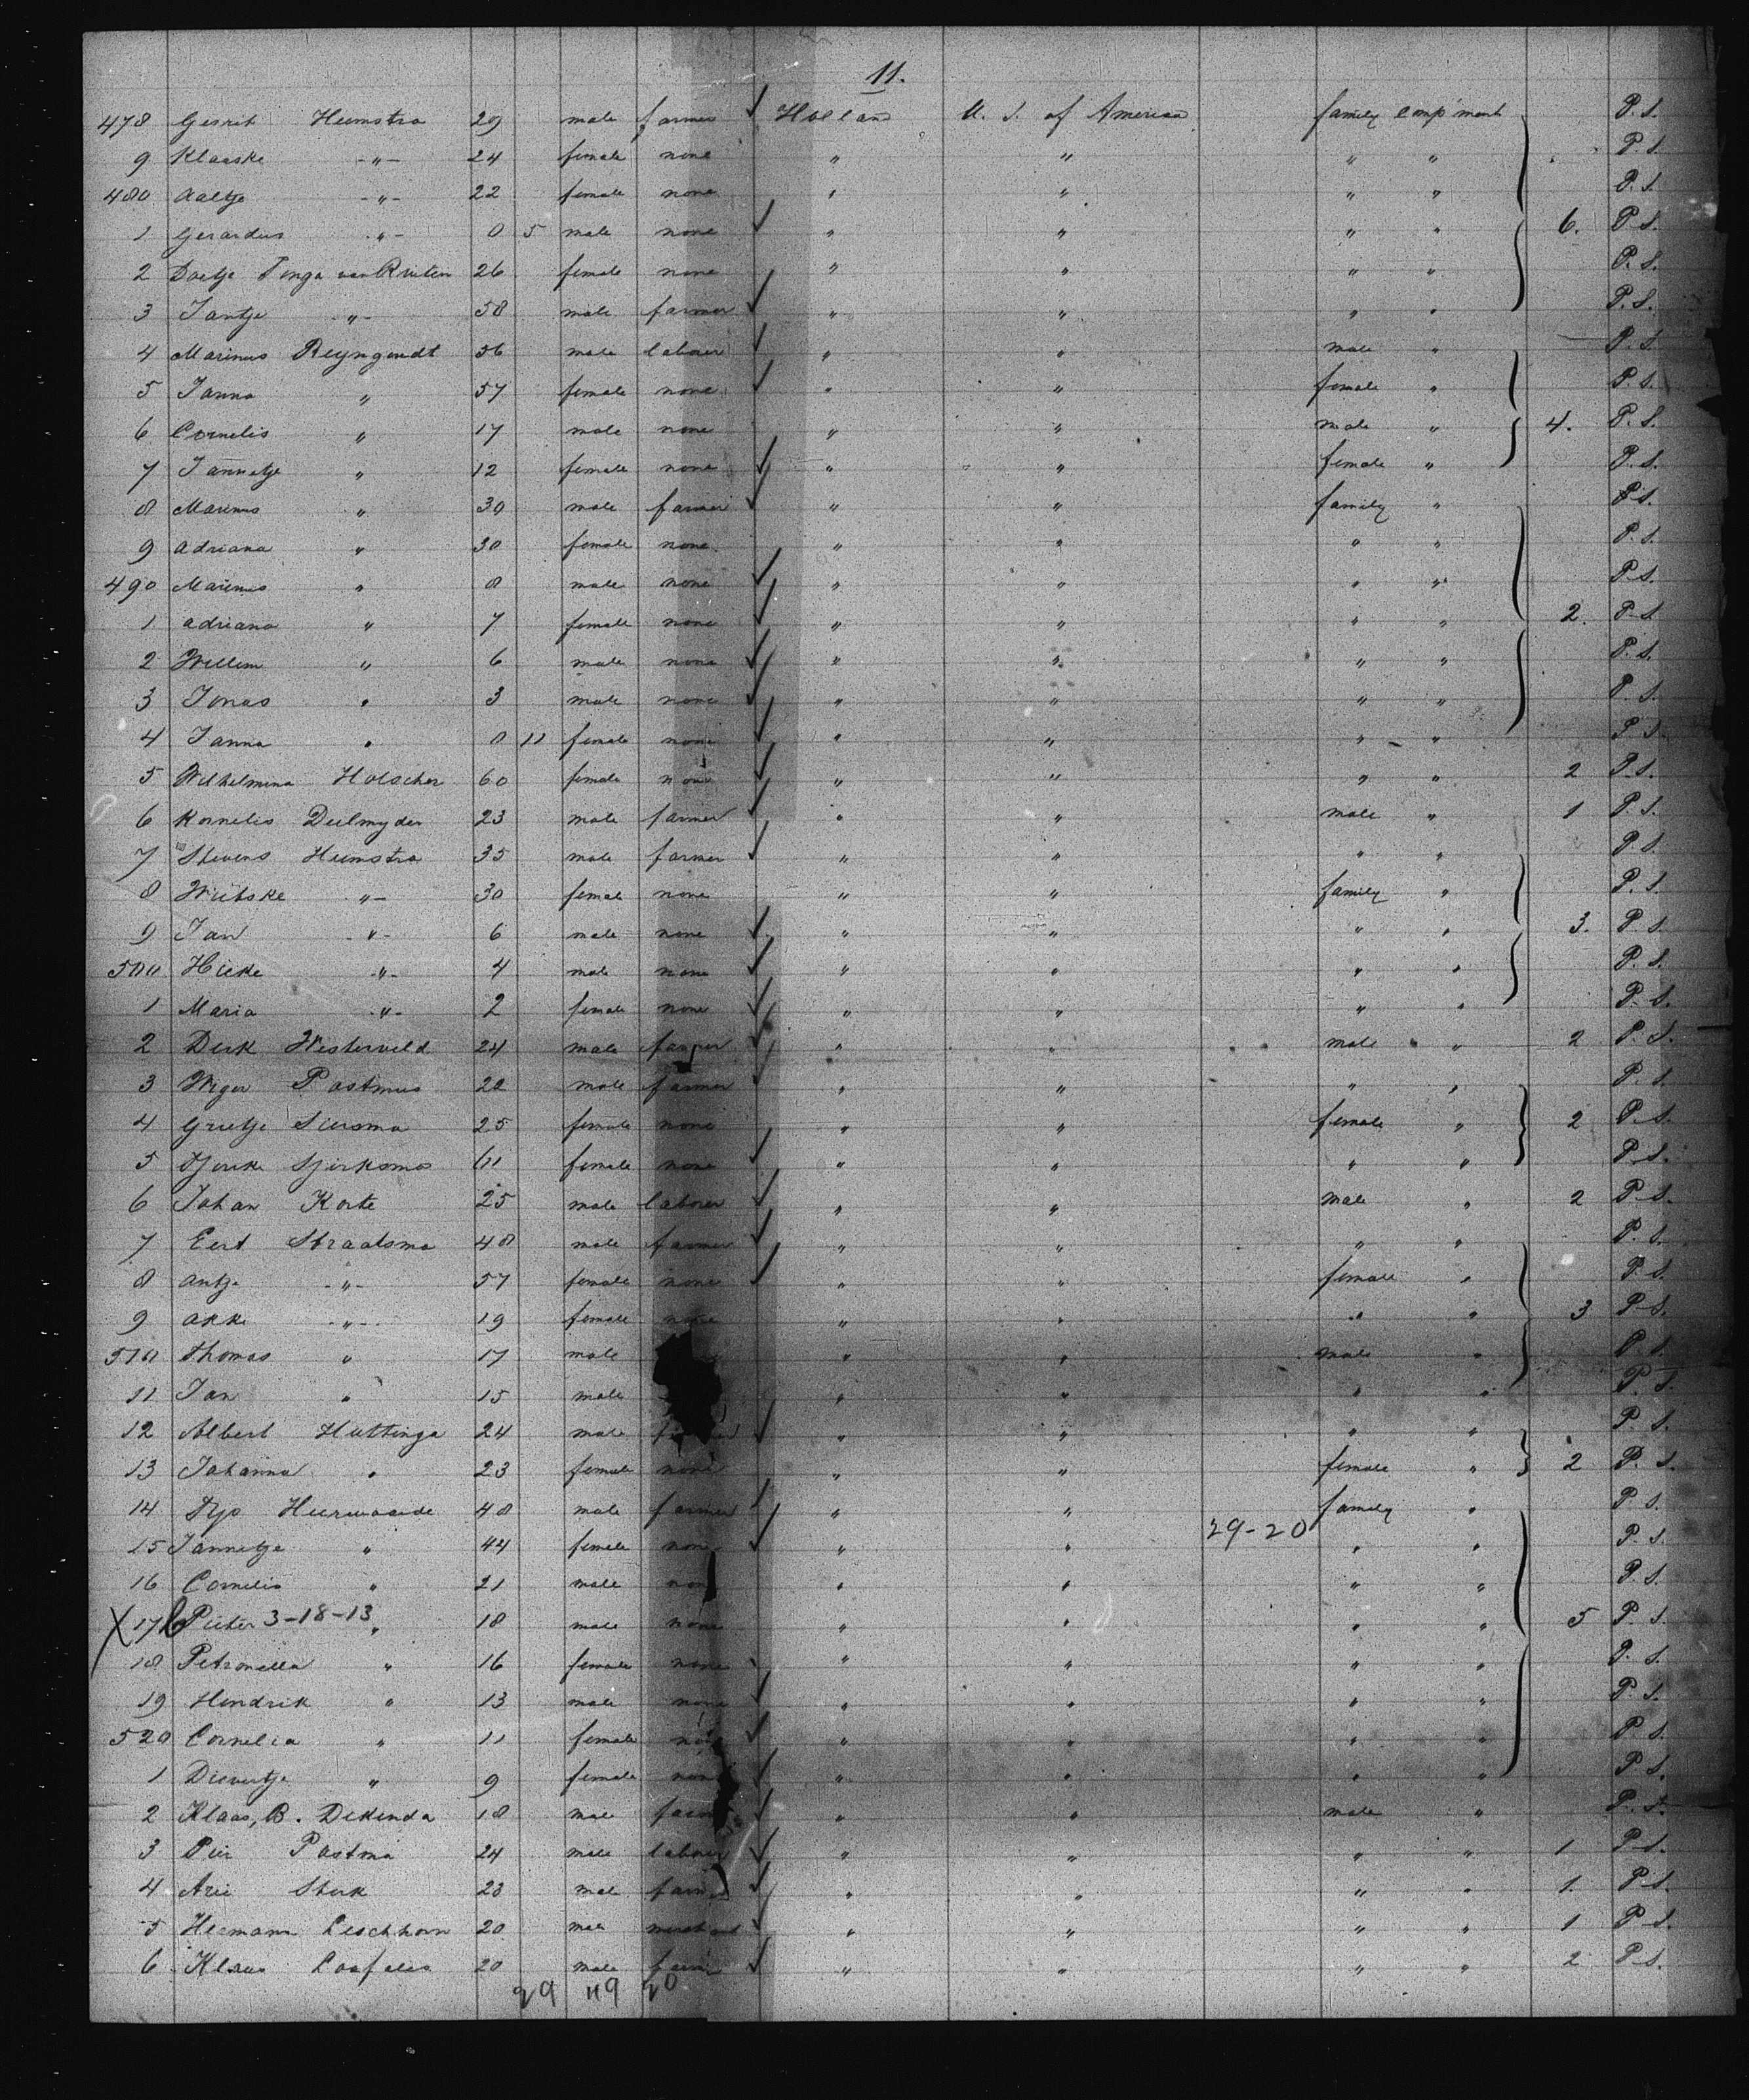 11.
478 Gerrit Heemstra 29 male farmer Holland U. S. of America family comp'ment P. S.
9 Klaaske -"- 24 female none " " " " P. S.
480 Aaltje -"- 22 female none " " " " P. S.
1 Gerardus -"- 0 5 male none " " " " 6. P. S.
2 Doetje Tinga van 26 female none " " " " P. S.
3 Jantje -"- 58 male farmer " " " " P. S.
4 Marinus 56 male laborer " " male " P. S.
5 Janna " 57 female none " " female " P. S.
6 Cornelis " 17 male none " " male " 4. P. S.
7 Jannetje " 12 female none " " female " P. S.
8 Marinus " 30 male farmer " " family " P. S.
9 Adriana " 30 female none " " " " P. S.
490 Marinus " 8 male none " " " " P. S.
1 Adriana " 7 female none " " " " 2. P. S.
2 Willem " 6 male none " " " " P. S.
3 Jonas " 3 male none " " " " P. S.
4 Janna " 0 11 female none " " " " P. S.
5 Wilhelmina Holscher 60 female none " " " " 2 P. S.
6 Kornelis 23 male farmer " " male " 1 P. S.
7 Stevens Heemstra 35 male farmer " " " " P. S.
8 Wietske -"- 30 female none " " family " P. S.
9 Jan -"- 6 male none " " " " 3. P. S.
500 Hieke -"- 4 male none " " " " P. S.
1 Maria -"- 2 female none " " " " P. S.
2 Dirk Westerveld 24 male farmer " " male " 2 P. S.
3 Postmus male farmer " " " " P. S.
4 Grietje Siersma 25 female none " " female " 2 P. S.
5 Sjierksma female none " " " " P. S.
6 Johan Korte 25 male laborer " " male " 2 P. S.
7 Eert Straatsma 48 male farmer " " " " P. S.
8 Antje -"- 57 female none " " female " P. S.
9 Akke -"- 19 female none " " " " 3 P. S.
510 Thomas " 17 male " " male " P. S.
11 Jan " 15 male " " " " P. S.
12 Albert Huttinga 24 male " " " " P. S.
13 Johanna " 23 female none " " female " 2 P. S.
14 48 male farmer " " family " P. S.
15 Jannetje " 44 female none " " 29-20 " " P. S.
16 Cornelis " 21 male none " " " " P. S.
X 17 Pieter 3-18-13 " 18 male none " " " " 5 P. S.
18 Petronella " 16 female none " " " " P. S.
19 Hendrik " 13 male none " " " " P. S.
520 Cornelia " 11 female none " " " " P. S.
1 Dievertje " 9 female none " " " " P. S.
2 Klaas, B. Dekenda 18 male farm " " male " P. S.
3 Pier Postma 24 male laborer " " " " 1 P. S.
4 Arie Sterk 23 male farm " " " " 1. P. S.
5 Hermann Leschhorn 20 male merchant " " " " 1 P. S.
6 Klaas 20 male farm " " " " 2 P. S.
29 49 20